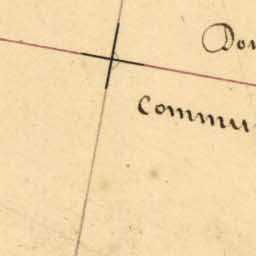 Dou
Commu